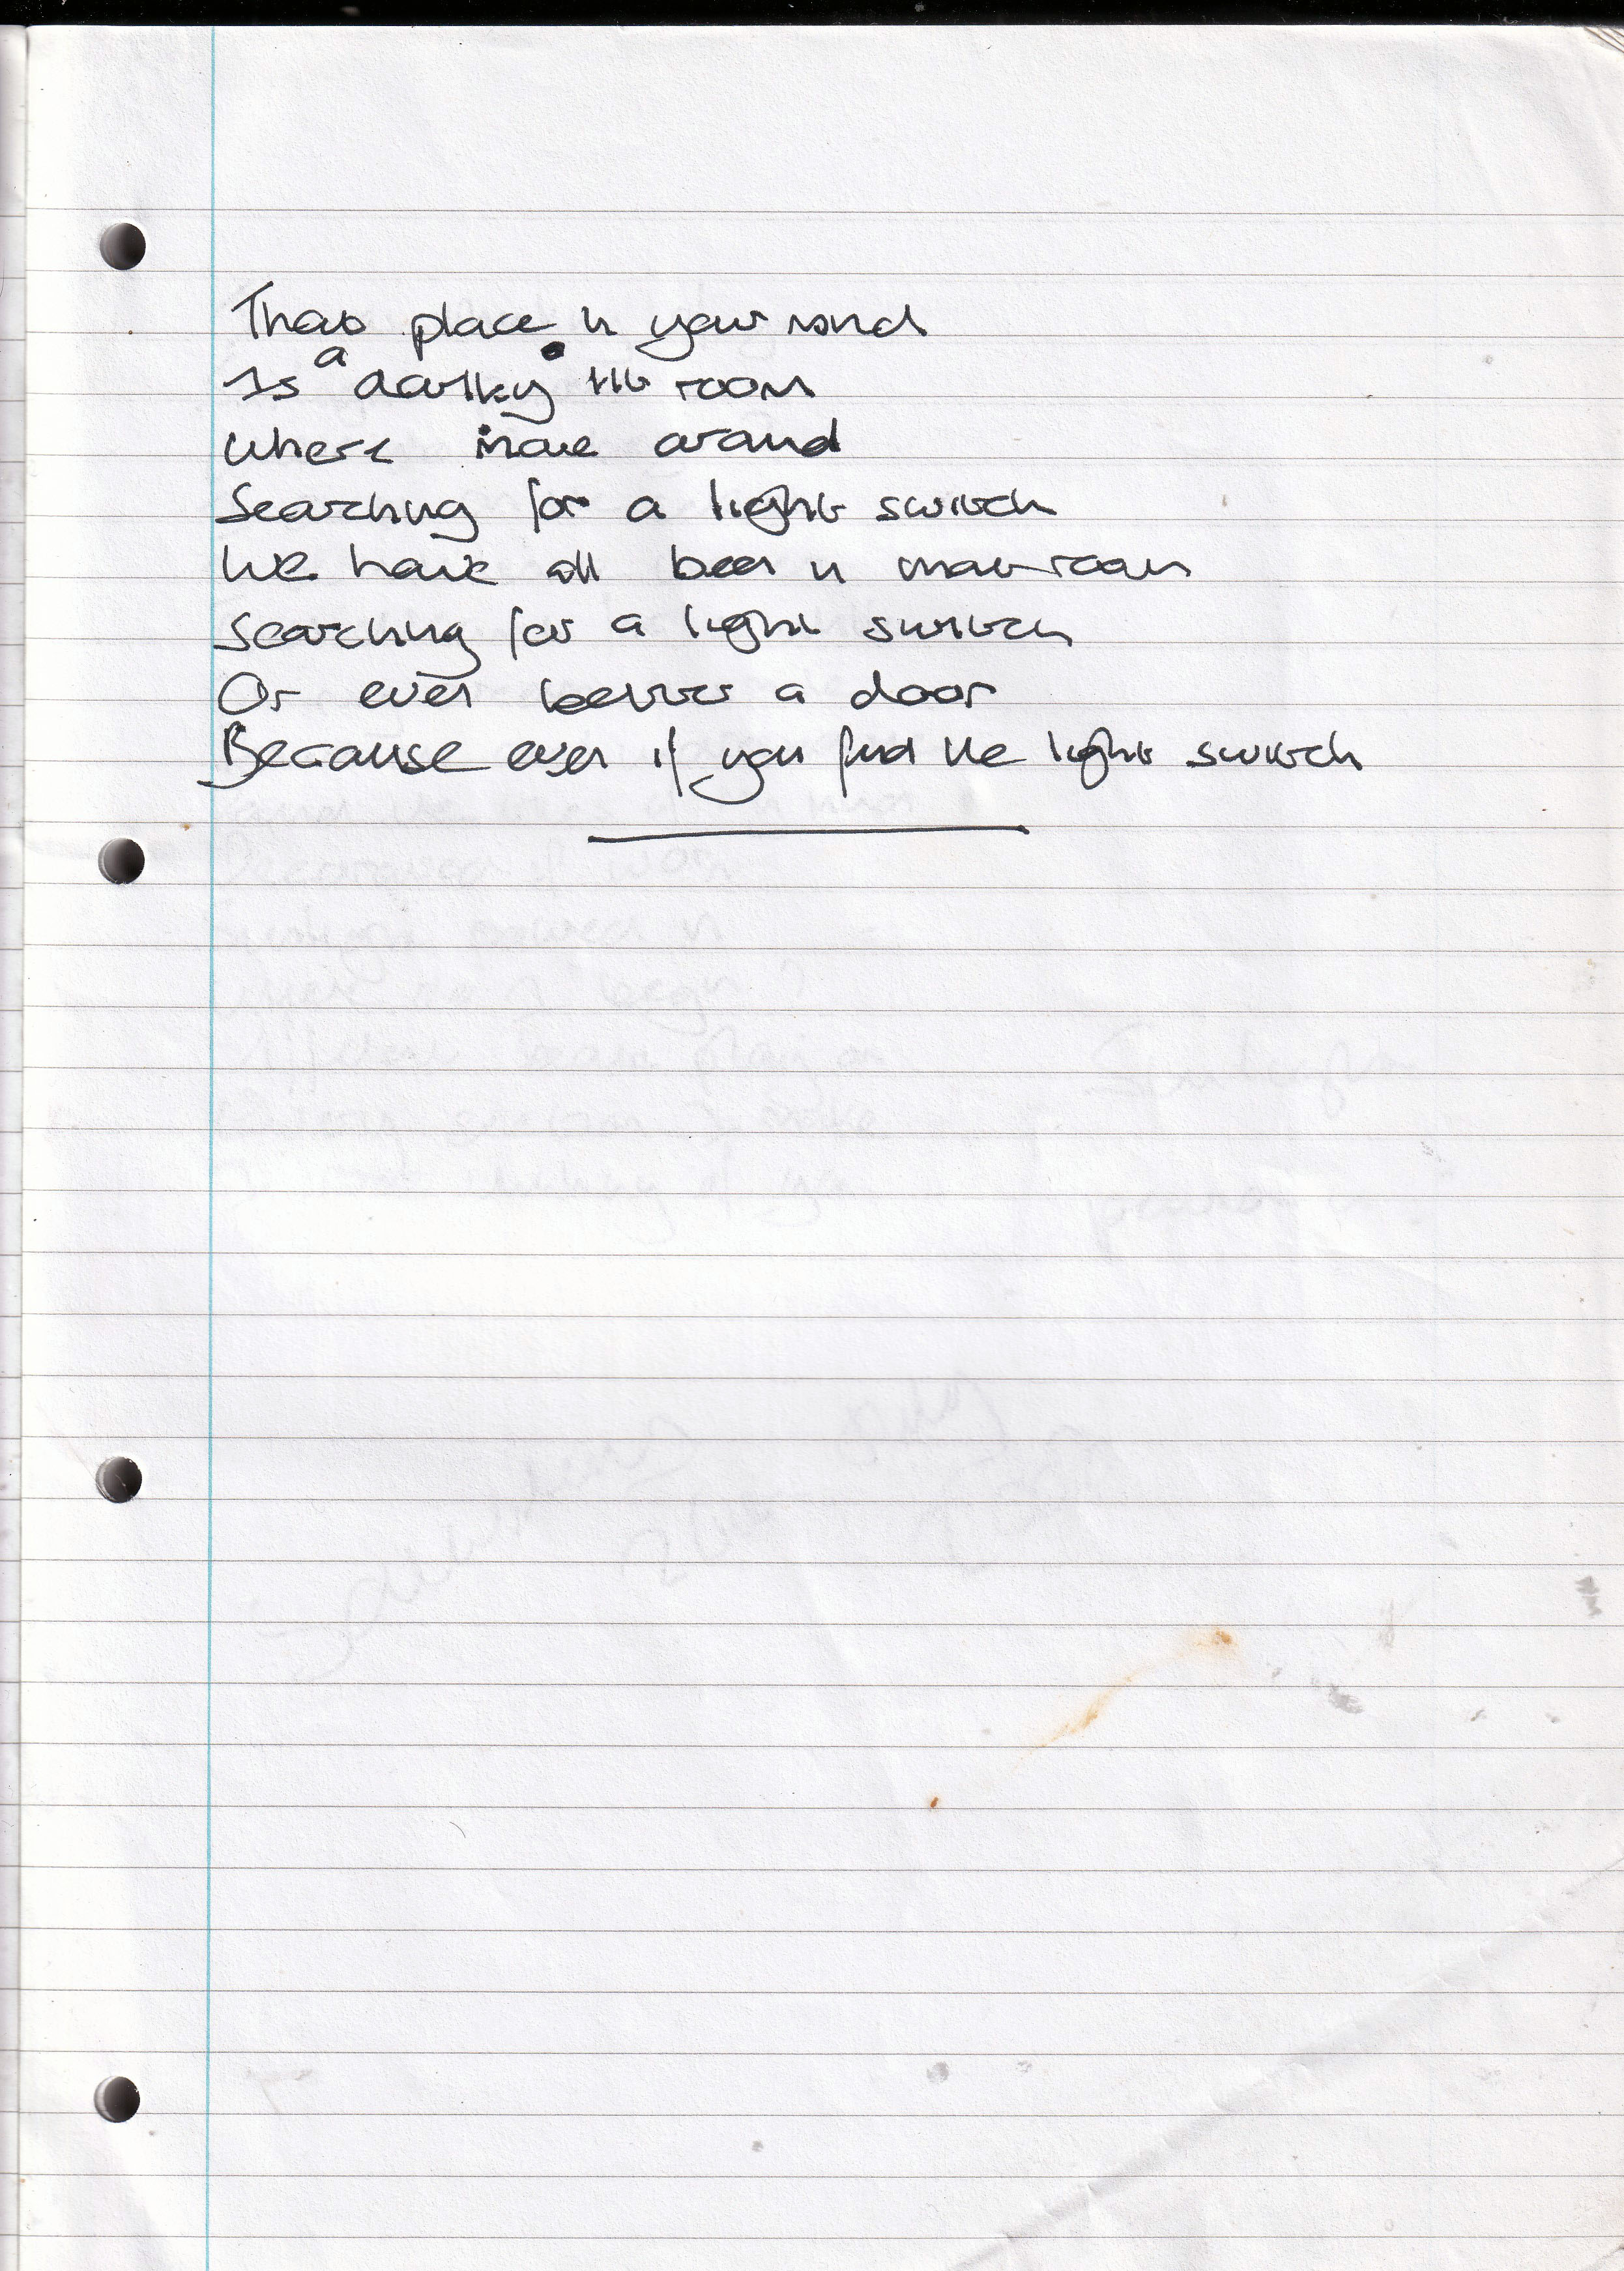 That place in your mind
Is a darkly lit room
Where move around
Searching for a light switch
We have all been in that room
Searching for a light switch
Or even better a door
Because even if you find the light switch